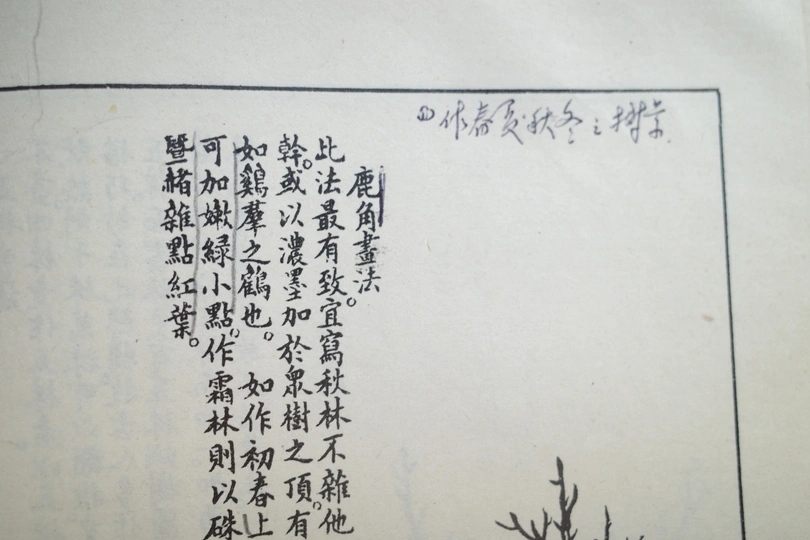 作春夏秋冬之樹景
鹿角畫法
此法最有致。宜寫秋林不雜他
幹。或以濃墨加於衆樹之頂。有
如鷄羣之鶴也。如作初春上
可加嫩綠小點。作霜林則以硃
暨赭雜點紅葉。